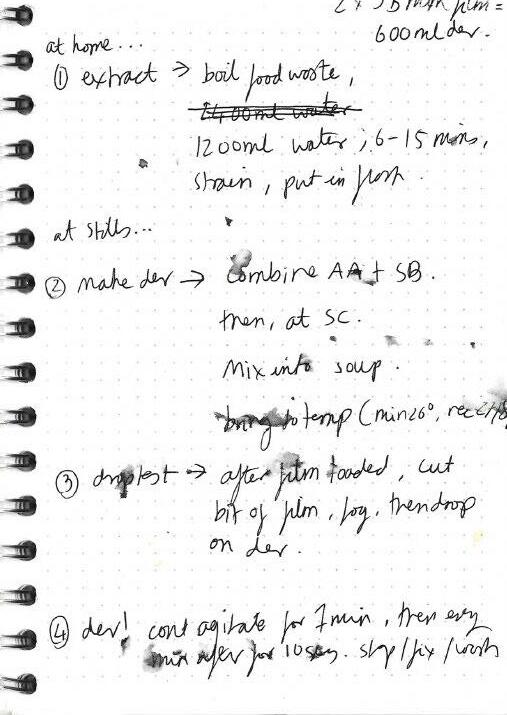 2 x 35mm film =
600ml dev.
at home...
① extract → boil food waste,
1200ml water, 6-15 mins,
strain, put in flask.
at stills...
② make dev → combine AA + SB.
then, at SC.
Mix into soup.
bring to temp (min 26°, rec
③ droptest → after film loaded, cut
bit of film, fog, then drop
on dev.
④ dev! cont agitate for 1 min, then every
min after for 10 secs. stop/fix/wash